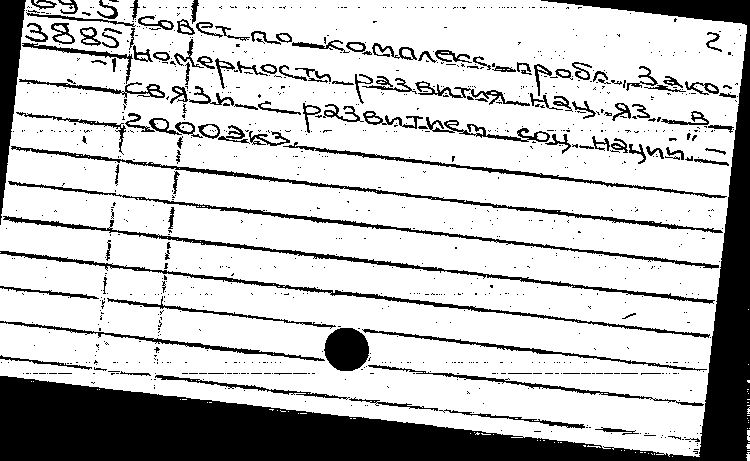 2.
69.5 совет по комплекс. пробл. „Зако-
3885 номерности развития нац. яз. в
-1 связи с развитием соц. наций" —
2000экз.